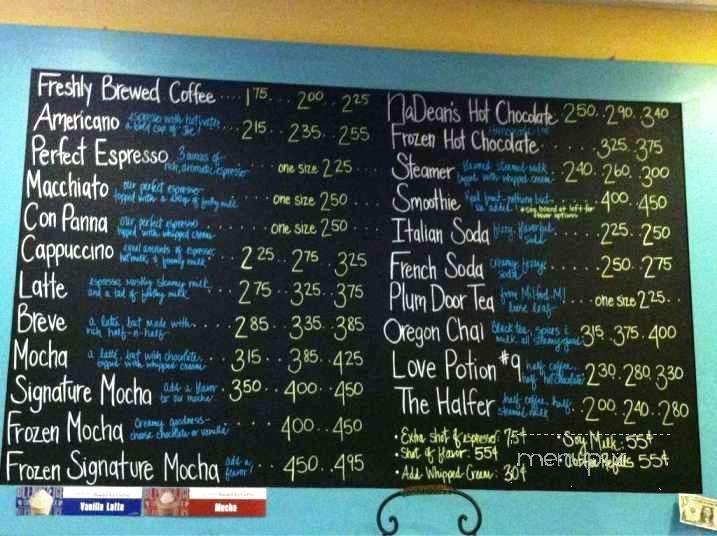 Freshly Brewed Coffee .... 1 75 ... 2 00 ... 2 25
Americano espresso with hot water, a bold cup of joe ... 2 15 ... 2 35 ... 2 55
Perfect Espresso 3 ounces of rich, aromatic espresso .... one size 2 25
Macchiato our perfect espresso topped with a dollop of frothy milk ... one size 2 50
Con Panna our perfect espresso topped with whipped cream ... one size 2 50
Cappuccino equal amounts of espresso, hot milk, & foamy milk 2 25 ... 2 75 ... 3 25
Latte espresso, mostly steamed milk, and a tad of frothy milk ... 2 75 ... 3 25 ... 3 75
Breve a latte, but made with rich half-n-half .... 2 85 ... 3 35 ... 3 85
Mocha a latte, but with chocolate, topped with whipped cream ... 3 15 ... 3 85 .. 4 25
Signature Mocha add a flavor to our mocha 3 50 ... 4 00 ... 4 50
Frozen Mocha creamy goodness - choose chocolate or vanilla .... 4 00 ... 4 50
Frozen Signature Mocha add a flavor! ... 4 50 ... 4 95
NaDean's Hot Chocolate 2 50 .. 2 90 .. 3 40
Frozen Hot Chocolate ..... 3 25 .. 3 75
Steamer flavored steamed milk topped with whipped cream 2 40 .. 2 60 .. 3 00
Smoothie real fruit - nothing but - ice added ..... 4 00 .. 4 50
* See board at left for flavor options
Italian Soda fizzy, flavorful soda ...... 2 25 .. 2 50
French Soda creamy, soda ...... 2 50 .. 2 75
Plum Door Tea from Milford, MI loose leaf ... one size 2 25 ..
Oregon Chai black tea, spices & milk, all steamy good 3 15 .. 3 75 .. 4 00
Love Potion #9 half coffee, half hot chocolate 2 30 .. 2 80 .. 3 30
The Halfer half coffee, half steamed milk ... 2 00 .. 2 40 .. 2 80
• Extra shot of espresso: 75¢
• Shot of flavor: 55¢
• Add Whipped Cream: 30¢
• Soy Milk: 55¢
Refills 55¢
menupix
Vanilla Latte
Mocha